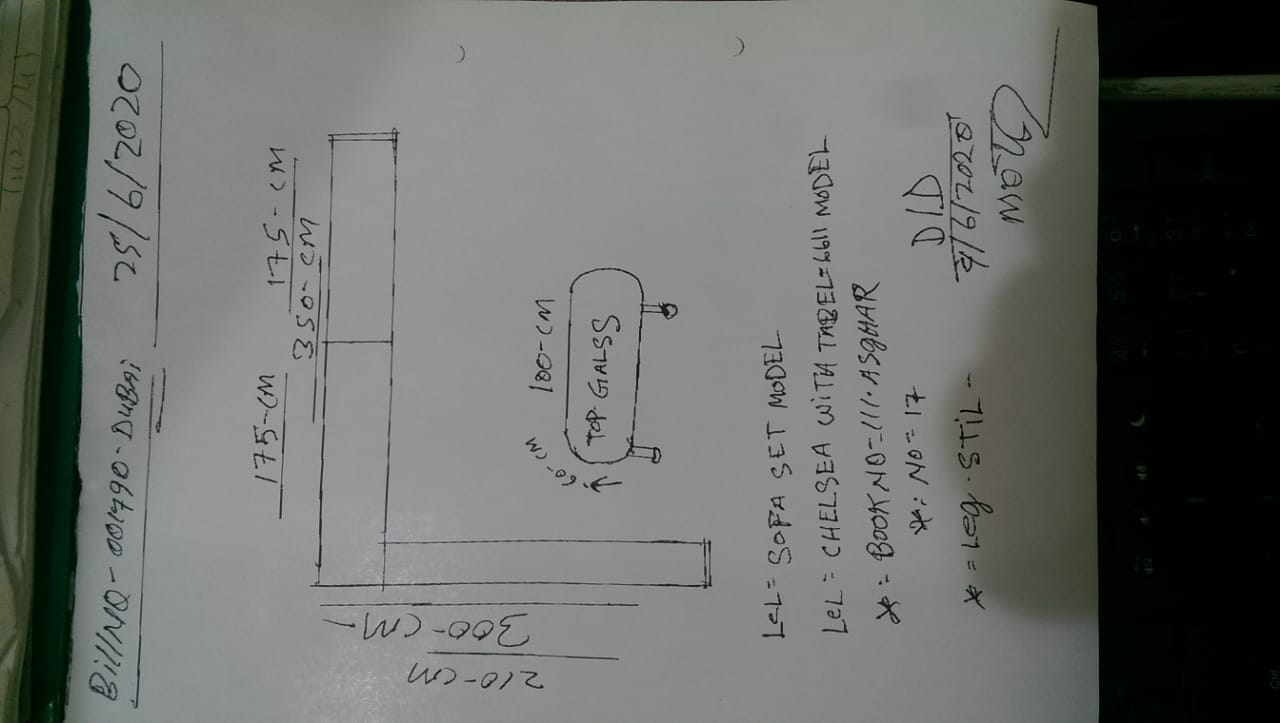 BillNO-001790-DUBAi 25/6/2020
175-CM 175-CM
350-CM
210-CM
300-CM-
60-CM
100-CM
TOP GALSS
LeL= SOFA SET MODEL
LeL= CHELSEA WITH TABEL=6611 MODEL
*= BOOK NO=111.ASgHAR
*: NO=17
*=Leg.STiL-
D/D
/6/2020